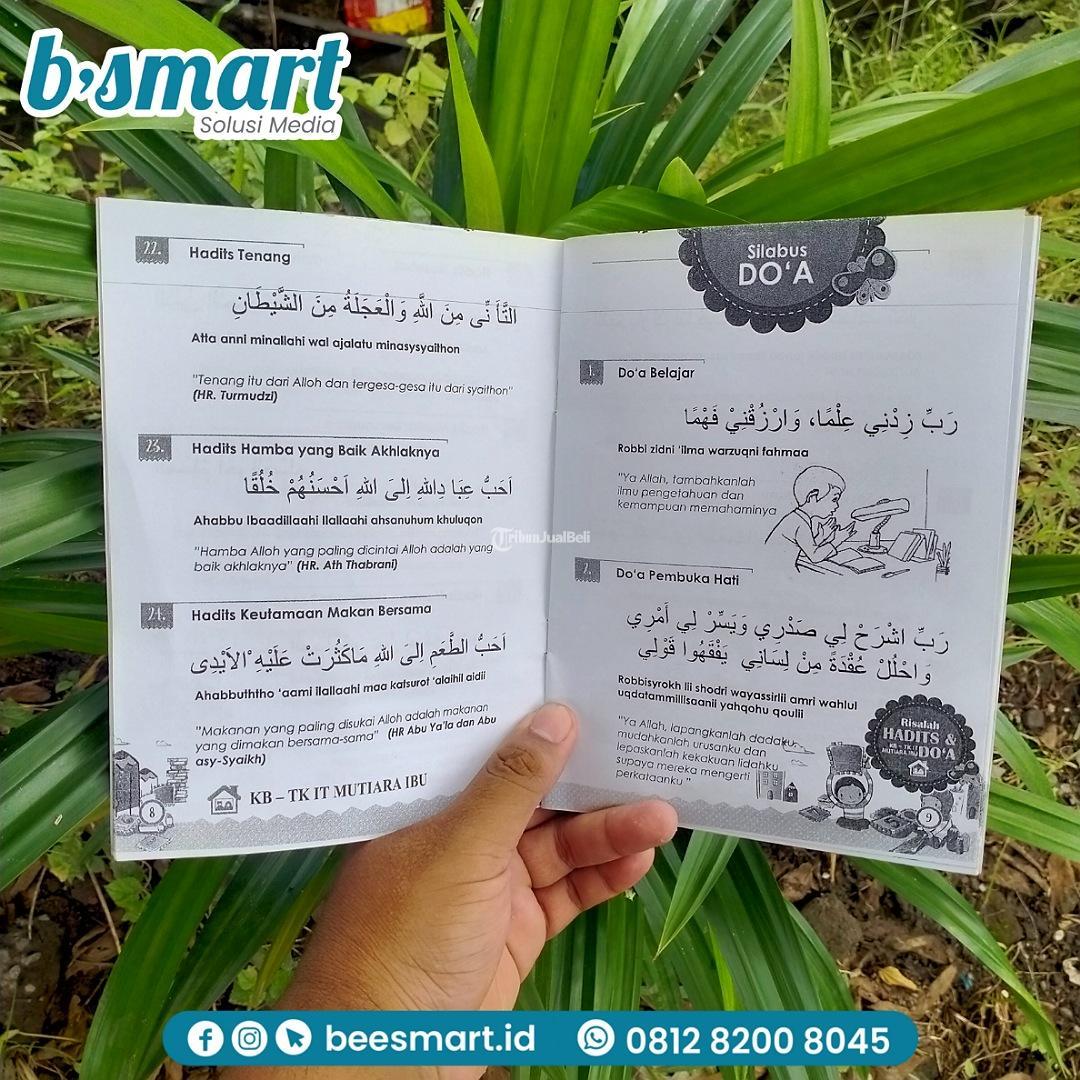 b•smart
Solusi Media
22.
Hadits Tenang
التَّأَ نِّى مِنَ اللَّهِ وَالْعَجَلَةُ مِنَ الشَّيْطَانِ
Atta anni minallahi wal ajalatu minasysyaithon
"Tenang itu dari Alloh dan tergesa-gesa itu dari syaithon"
(HR. Turmudzi)
23.
Hadits Hamba yang Baik Akhlaknya
اَحَبُّ عِبَا دِاللهِ اِلىَ اللهِ اَحْسَنُهُمْ خُلُقًا
Ahabbu Ibaadillaahi Ilallaahi ahsanuhum khuluqon
"Hamba Alloh yang paling dicintai Alloh adalah yang
baik akhlaknya" (HR. Ath Thabrani)
24.
Hadits Keutamaan Makan Bersama
اَحَبُّ الطَّعَمِ اِلىَ اللهِ مَاكَثُرَتْ عَلَيْهِ الاَيْدِى
Ahabbuththo 'aami ilallaahi maa katsurot 'alaihil aidii
"Makanan yang paling disukai Alloh adalah makanan
yang dimakan bersama-sama" (HR Abu Ya'la dan Abu
asy-Syaikh)
KB – TK IT MUTIARA IBU
8
Silabus
DO'A
1.
Do'a Belajar
رَبِّ زِدْنِي عِلْمًا، وَارْزُقْنِيْ فَهْمًا
Robbi zidni 'ilma warzuqni fahmaa
"Ya Allah, tambahkanlah
ilmu pengetahuan dan
kemampuan memahaminya
2.
Do'a Pembuka Hati
رَبِّ اشْرَحْ لِي صَدْرِي وَيَسِّرْ لِي أَمْرِي
وَاحْلُلْ عُقْدَةً مِنْ لِسَانِي يَفْقَهُوا قَوْلِي
Robbisyrokh lii shodri wayassirlii amri wahlul
uqdatammilllsaanii yahqohu qoulii
"Ya Allah, lapangkanlah dadaku,
mudahkanlah urusanku dan
lepaskanlah kekakuan lidahku
supaya mereka mengerti
perkataanku "
Risalah
HADITS &
KB – TK IT
MUTIARA IBU
DO'A
9
TribunJualBeli
beesmart.id
0812 8200 8045